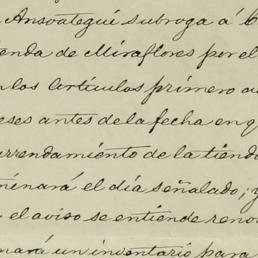 Ansoategui subroga á
enda de Miraflores por el
los artículos primero
eses antes de la fecha en q
rrendamiento de la tiend
minará el día señalado; y
el aviso se entiende reno
nará un inventario para